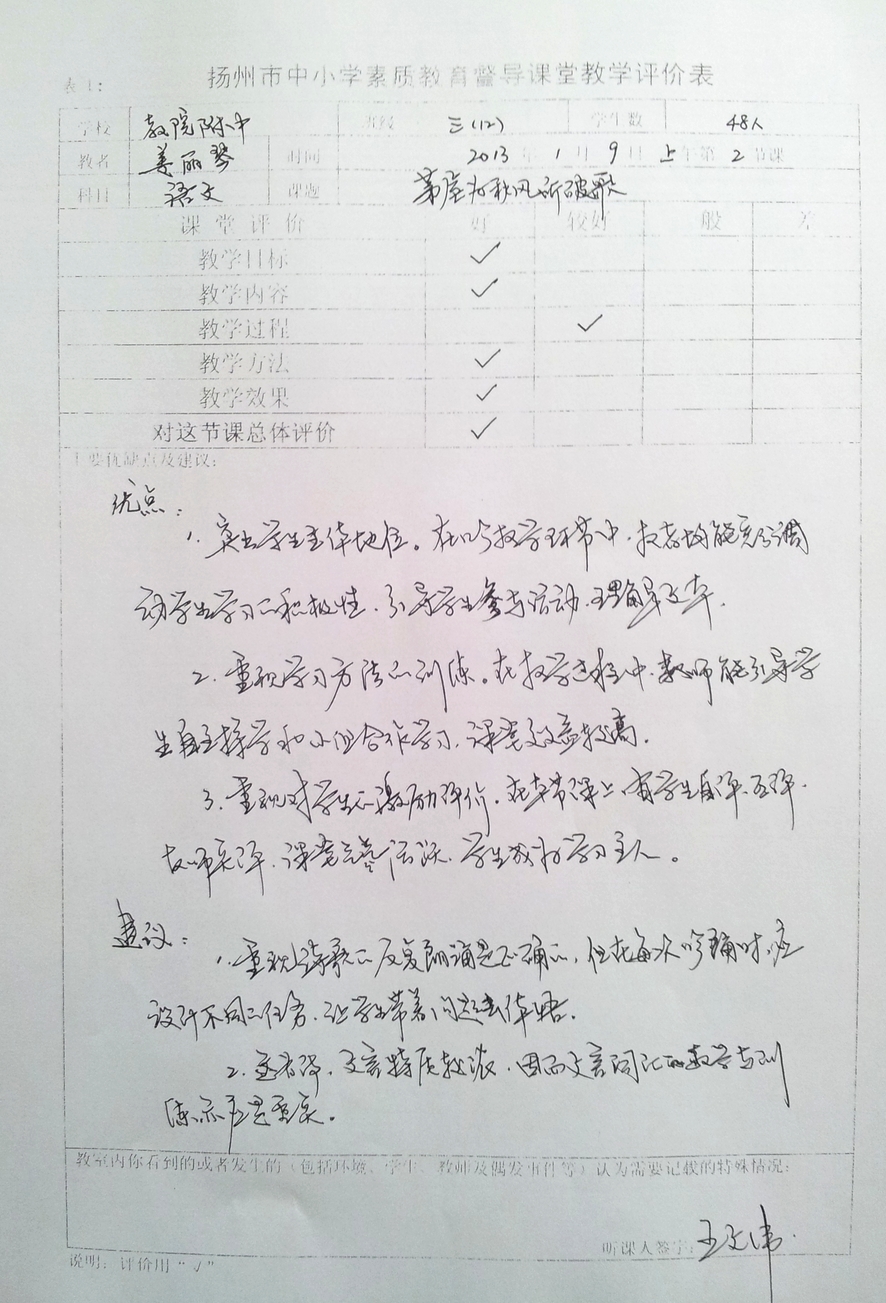 扬州市中小学素质教育督导课堂教学评价表
表1:
学校 教院附中 班级 三(12) 学生数 48人
教者 姜丽琴 时间 2013年1月9日 上午第2节课
科目 语文 课题 茅屋为秋风所破歌
课堂评价 好 较好 一般 差
教学目标 ✓
教学内容 ✓
教学过程 ✓
教学方法 ✓
教学效果 ✓
对这节课总体评价 ✓
主要优缺点及建议:
优点:
1. 突出学生主体地位。在以今教学环节中,教者均能充分调
动学生学习的积极性,引导学生参与活动,理解文本。
2. 重视学习方法的训练。在教学过程中,教师能引导学
生自主探学和小组合作学习,课堂效益较高。
3. 重视对学生的激励评价。在本节课上,有学生自评、互评、
教师点评,课堂气氛活跃,学生成为学习主人。
建议:
1. 重视诗歌的反复朗诵是正确的,但在每次吟诵时,应
设计不同的任务,让学生带着问题去体悟。
2. 文言特质较浓,因而文言词汇的教学与训
练亦应是重点。
教室内你看到的或者发生的(包括环境、学生、教师及偶发事件等)认为需要记载的特殊情况:
听课人签字: 王文伟
说明: 评价用“√”